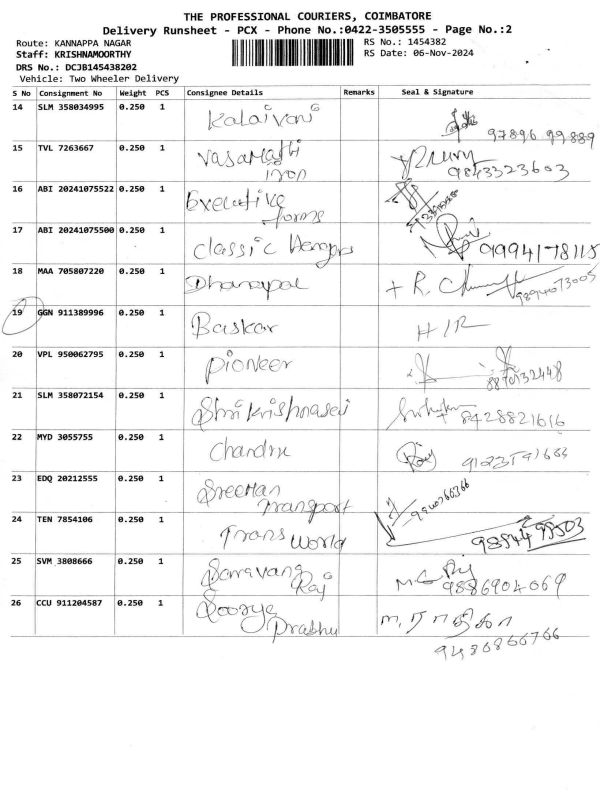 THE PROFESSIONAL COURIERS, COIMBATORE
Delivery Runsheet - PCX - Phone No.:0422-3505555 - Page No.:2
Route: KANNAPPA NAGAR
RS No.: 1454382
Staff: KRISHNAMOORTHY
RS Date: 06-Nov-2024
DRS No.: DCJB145438202
Vehicle: Two Wheeler Delivery
S No Consignment No Weight PCS Consignee Details Remarks Seal & Signature
14 SLM 358034995 0.250 1 Kalaivani 97896 99889
15 TVL 7263667 0.250 1 Vasamathi
iron 9843323603
16 ABI 20241075522 0.250 1 Executive
forms
17 ABI 20241075500 0.250 1 Classic Hangers 9994178115
18 MAA 705807220 0.250 1 Dhanapal + R. 9894073005
19 GGN 911389996 0.250 1 Baskar H/R
20 VPL 950062795 0.250 1 Pioneer 8870132448
21 SLM 358072154 0.250 1 Shri Krishnasei 8428821616
22 MYD 3055755 0.250 1 Chandru
23 EDQ 20212555 0.250 1 Sreehan
Transport 9940766366
24 TEN 7854106 0.250 1 Trans World 98944 99503
25 SVM 3808666 0.250 1 Saravana
Raj 9886904069
26 CCU 911204587 0.250 1 Soorya
Prabhu ம. ராதிகா
9486866766